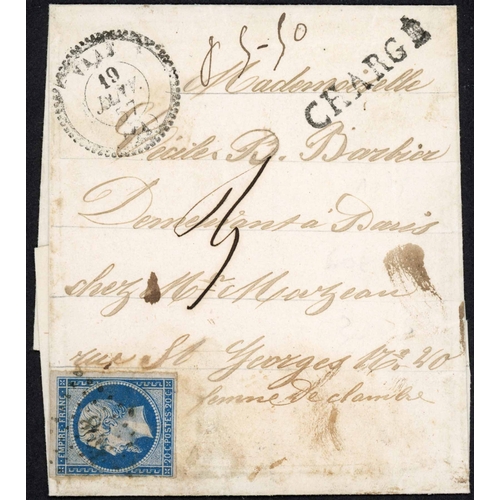 19
JANV.
8 5-50
CHARGÉ
Mademoiselle
Cécile B. Barbier
Demeurant à Paris
chez Mr Mozean
rue St Georges No. 20
femme de chambre
EMPIRE FRANC
20 C. POSTES 20 C.